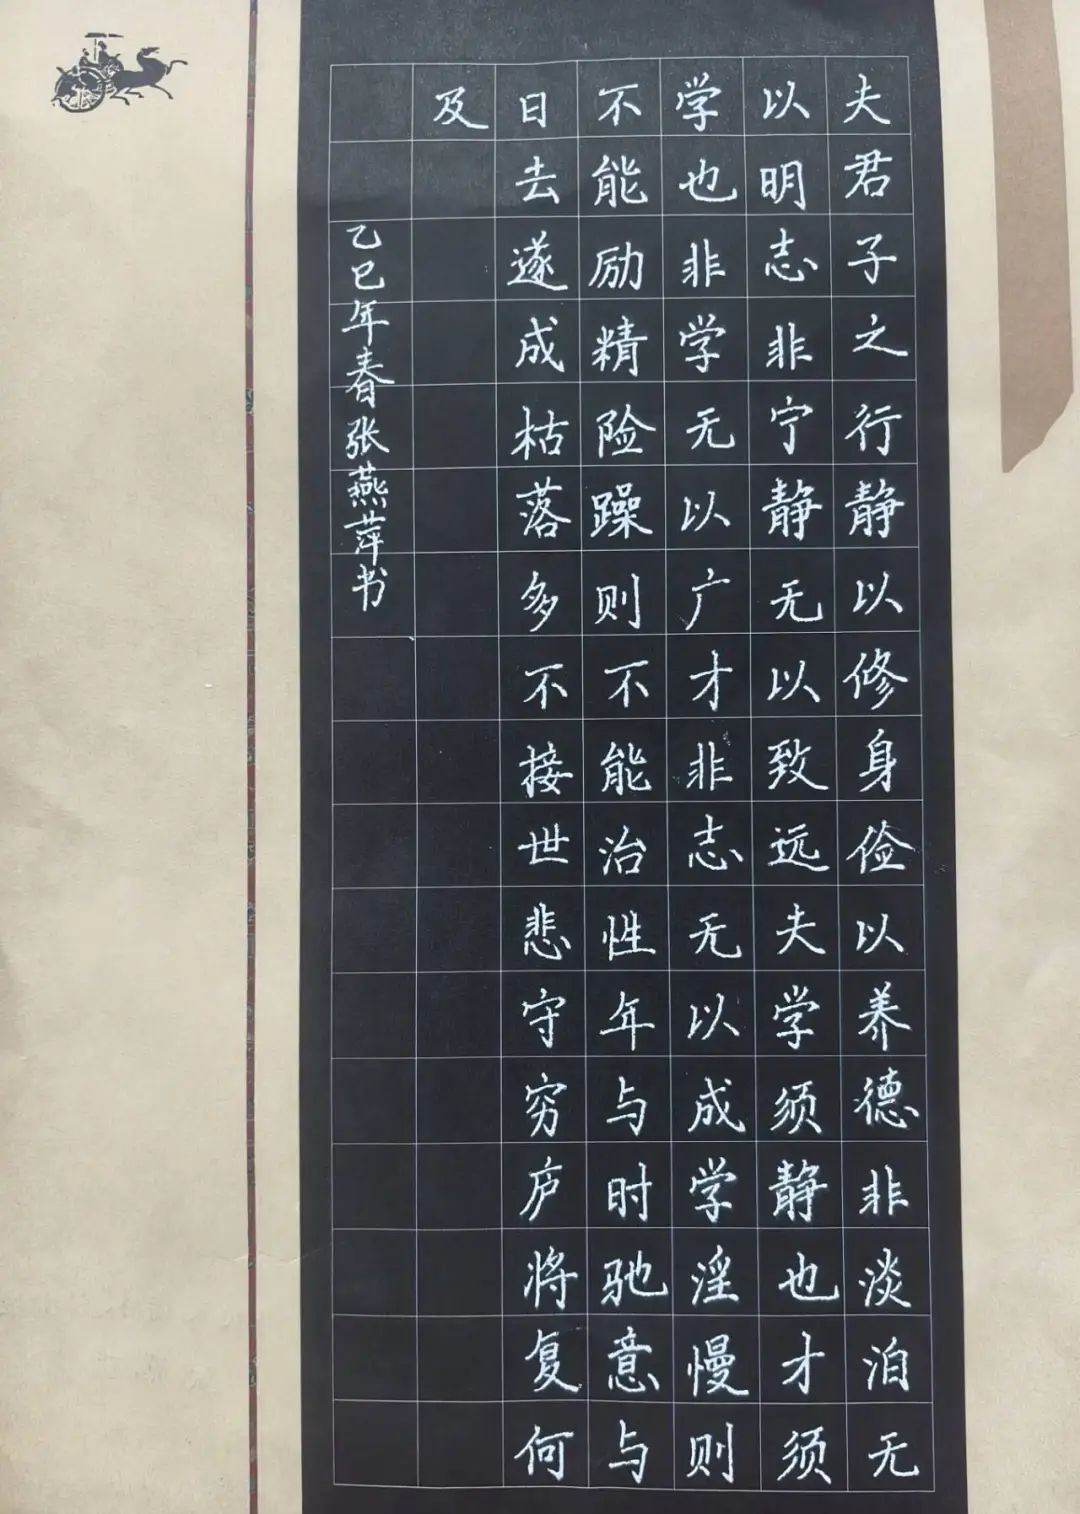 夫君子之行静以修身俭以养德非淡泊无
以明志非宁静无以致远夫学须静也才须
学也非学无以广才非志无以成学淫慢则
不能励精险躁则不能治性年与时驰意与
日去遂成枯落多不接世悲守穷庐将复何
及
乙巳年春张燕萍书